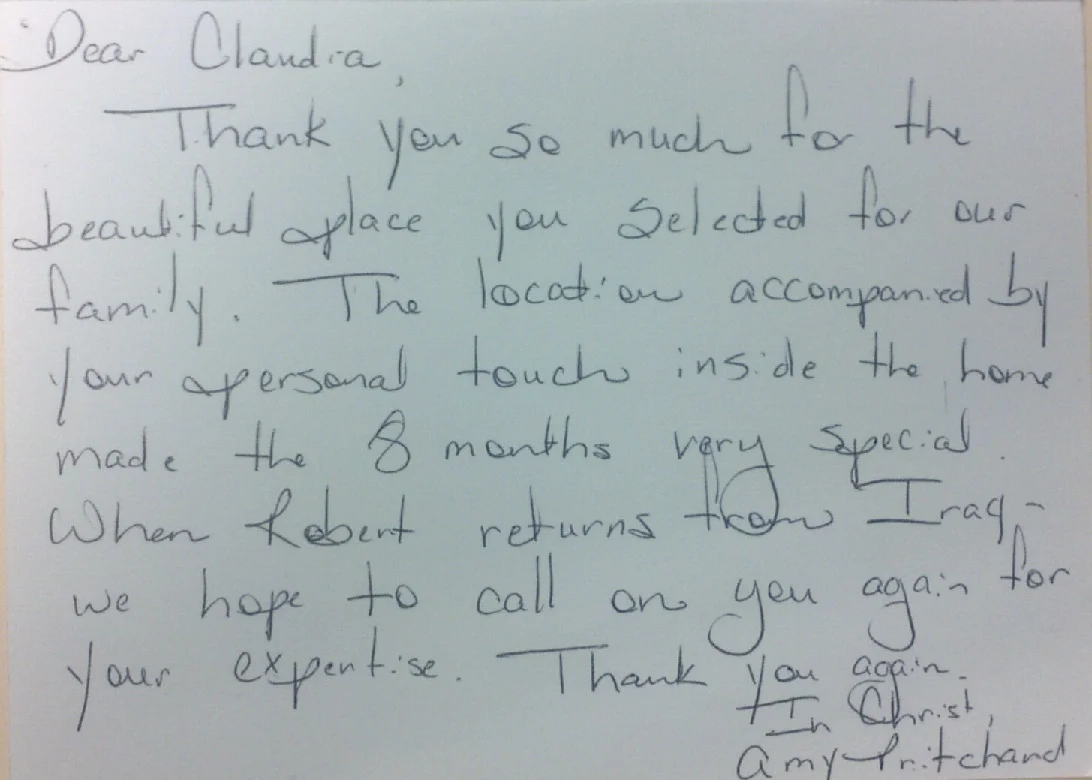 Dear Claudia,
Thank you so much for the
beautiful place you selected for our
family. The location accompanied by
your personal touch inside the home
made the 8 months very special.
When Robert returns from Iraq -
we hope to call on you again for
your expertise. Thank you again.
In Christ,
Amy Pritchard